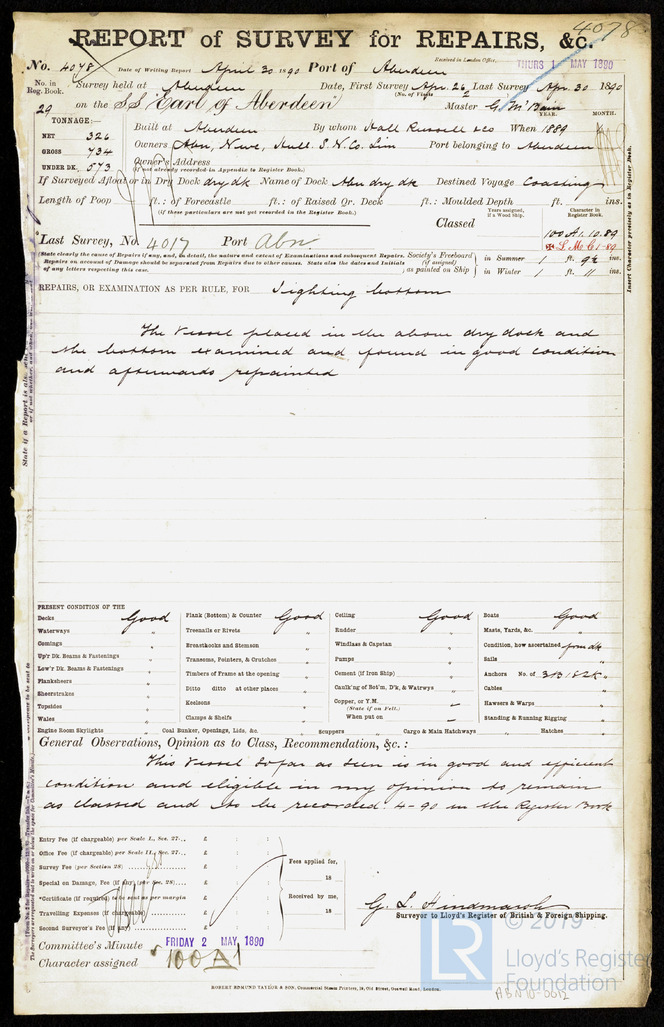 4078
REPORT of SURVEY for REPAIRS, &c.
Received in London Office,
THURS 1 MAY 1890
No. 4078 Date of Writing Report April 30 1890 Port of Aberdeen
No. in Reg. Book. Survey held at Aberdeen Date, First Survey Apr. 26 Last Survey Apr. 30 1890
(No. of Visits 2
29 on the SS "Earl of Aberdeen" Master G. McBain
YEAR. MONTH.
TONNAGE:—
Built at Aberdeen By whom Hall Russell & Co When 1889
NET 326
GROSS 734
UNDER DK. 573
Owners Abn, Newc, Hull S. N. Co. Lim Port belonging to Aberdeen
Owner's Address
(if not already recorded in Appendix to Register Book.)
If Surveyed Afloat or in Dry Dock dry dk Name of Dock Abn dry dk Destined Voyage Coasting
Length of Poop ft.: of Forecastle ft.: of Raised Qr. Deck ft.: Moulded Depth ft. ins.
(if these particulars are not yet recorded in the Register Book.)
Classed
Years assigned, if a Wood Ship.
Character in Register Book.
100 A1. 10.89
L.M.C. 1-89
Last Survey, No. 4017 Port Abn.
(State clearly the cause of Repairs if any, and, in detail, the nature and extent of Examinations and subsequent Repairs.
Repairs on account of Damage should be separated from Repairs due to other causes. State also the dates and Initials
of any letters respecting this case.
Society's Freeboard (if assigned) as painted on Ship
in Summer 1 ft. 9½ ins.
in Winter 1 ft. 11 ins.
Insert Character precisely as in Register Book.
REPAIRS, OR EXAMINATION AS PER RULE, FOR Sighting bottom
The vessel placed in the above dry dock and
the bottom examined and found in good condition
and afterwards repainted
PRESENT CONDITION OF THE
Decks Good
Waterways "
Comings "
Up'r Dk. Beams & Fastenings "
Low'r Dk. Beams & Fastenings "
Planksheers "
Sheerstrakes "
Topsides "
Wales "
Plank (Bottom) & Counter Good
Treenails or Rivets "
Breasthooks and Stemson "
Transoms, Pointers, & Crutches "
Timbers of Frame at the opening "
Ditto ditto at other places "
Keelsons "
Clamps & Shelfs "
Ceiling Good
Rudder "
Windlass & Capstan "
Pumps "
Cement (if Iron Ship) "
Caulk'ng of Bot'm, D'k, & Watrwys "
Copper, or Y.M. —
(State if on Felt.)
When put on —
Boats Good
Masts, Yards, &c. "
Condition, how ascertained from dk
Sails "
Anchors No. of 3B 1S 2K "
Cables "
Hawsers & Warps "
Standing & Running Rigging "
Engine Room Skylights " Coal Bunker, Openings, Lids, &c. " Scuppers " Cargo & Main Hatchways " Hatches "
General Observations, Opinion as to Class, Recommendation, &c.:
This vessel so far as seen is in good and efficient
condition and eligible in my opinion to remain
as classed and to be recorded 4-90 in the Register Book
Entry Fee (if chargeable) per Scale I., Sec. 27... £ : :
Office Fee (if chargeable) per Scale II., Sec. 27... £ : :
Survey Fee (per Section 28) £ : :
Special on Damage, Fee (if any) (per Sec. 28) £ : :
*Certificate (if required) to be sent as per margin £ : :
Travelling Expenses (if chargeable) £ : :
Second Surveyor's Fee (if any) £ : :
Fees applied for,
18
Received by me,
18
G. L. Hindmarsh
Surveyor to Lloyd's Register of British & Foreign Shipping.
Committee's Minute FRIDAY 2 MAY 1890
Character assigned 100 A1
© 2019
LR
Lloyd's Register
Foundation
ABN10-0012
ROBERT EDMUND TAYLOR & SON, Commercial Steam Printers, 19, Old Street, Goswell Road, London.